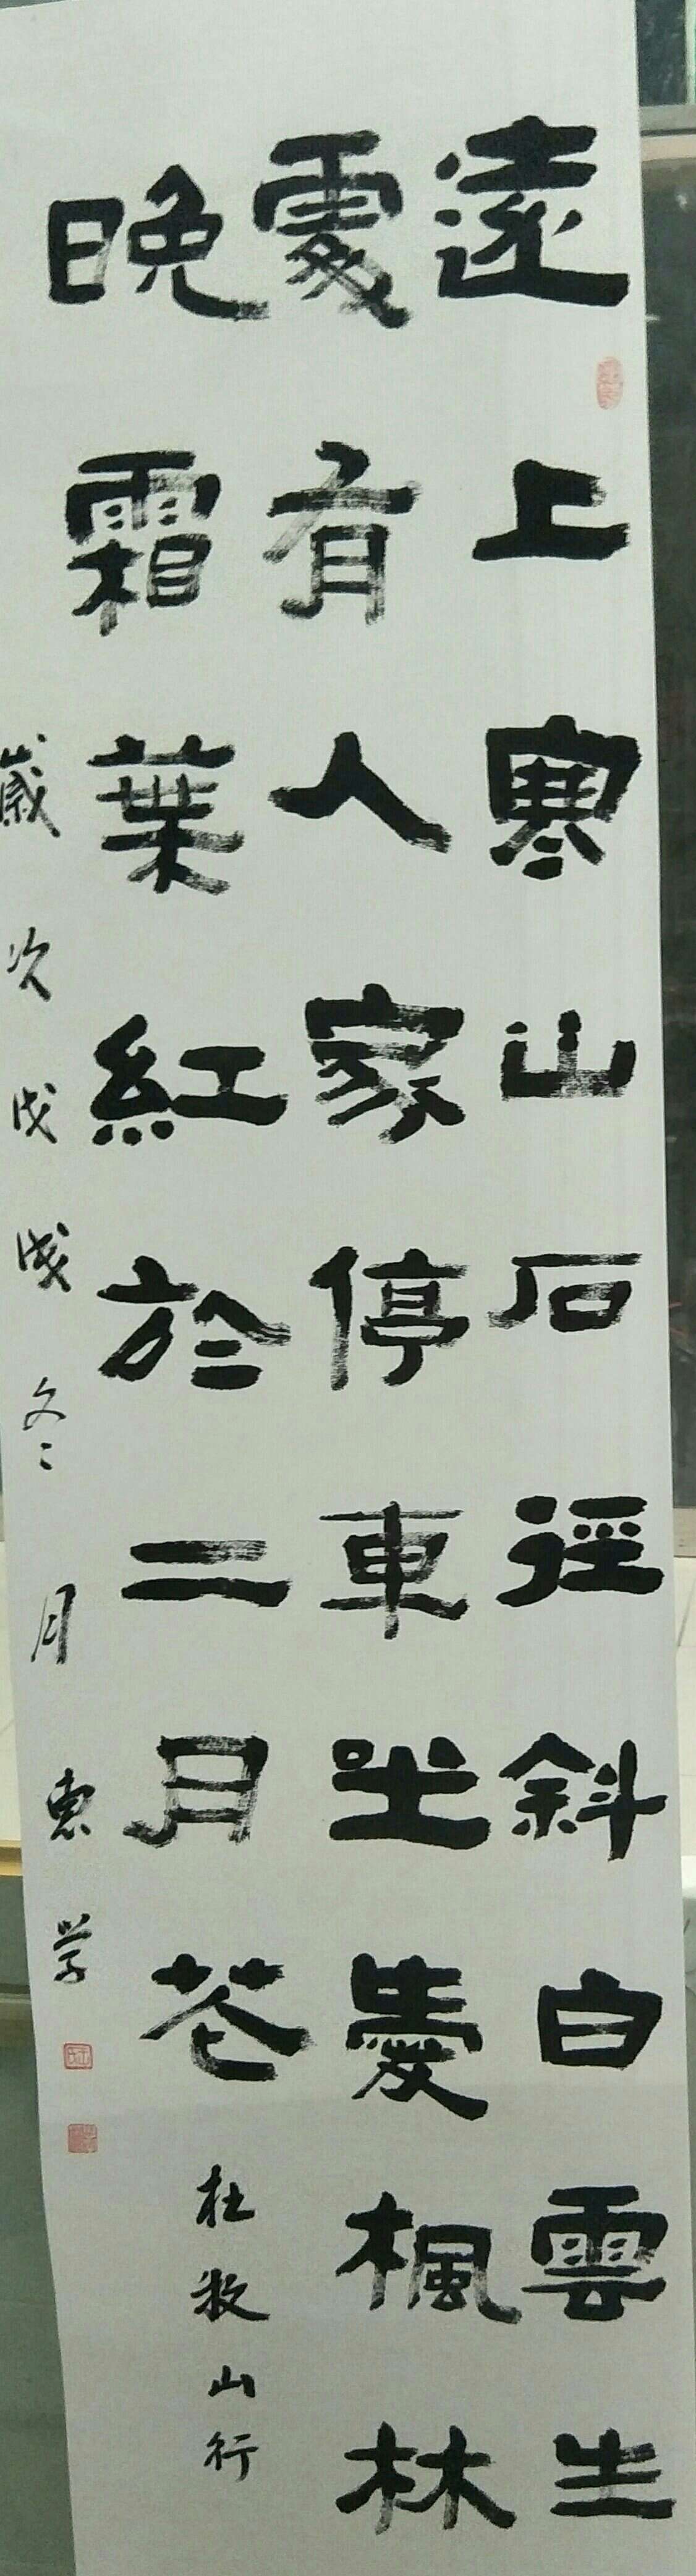 遠上寒山石徑斜白雲生
處有人家停車坐愛楓林
晚霜葉紅於二月花杜牧山行
歲次戊戌冬月惠学